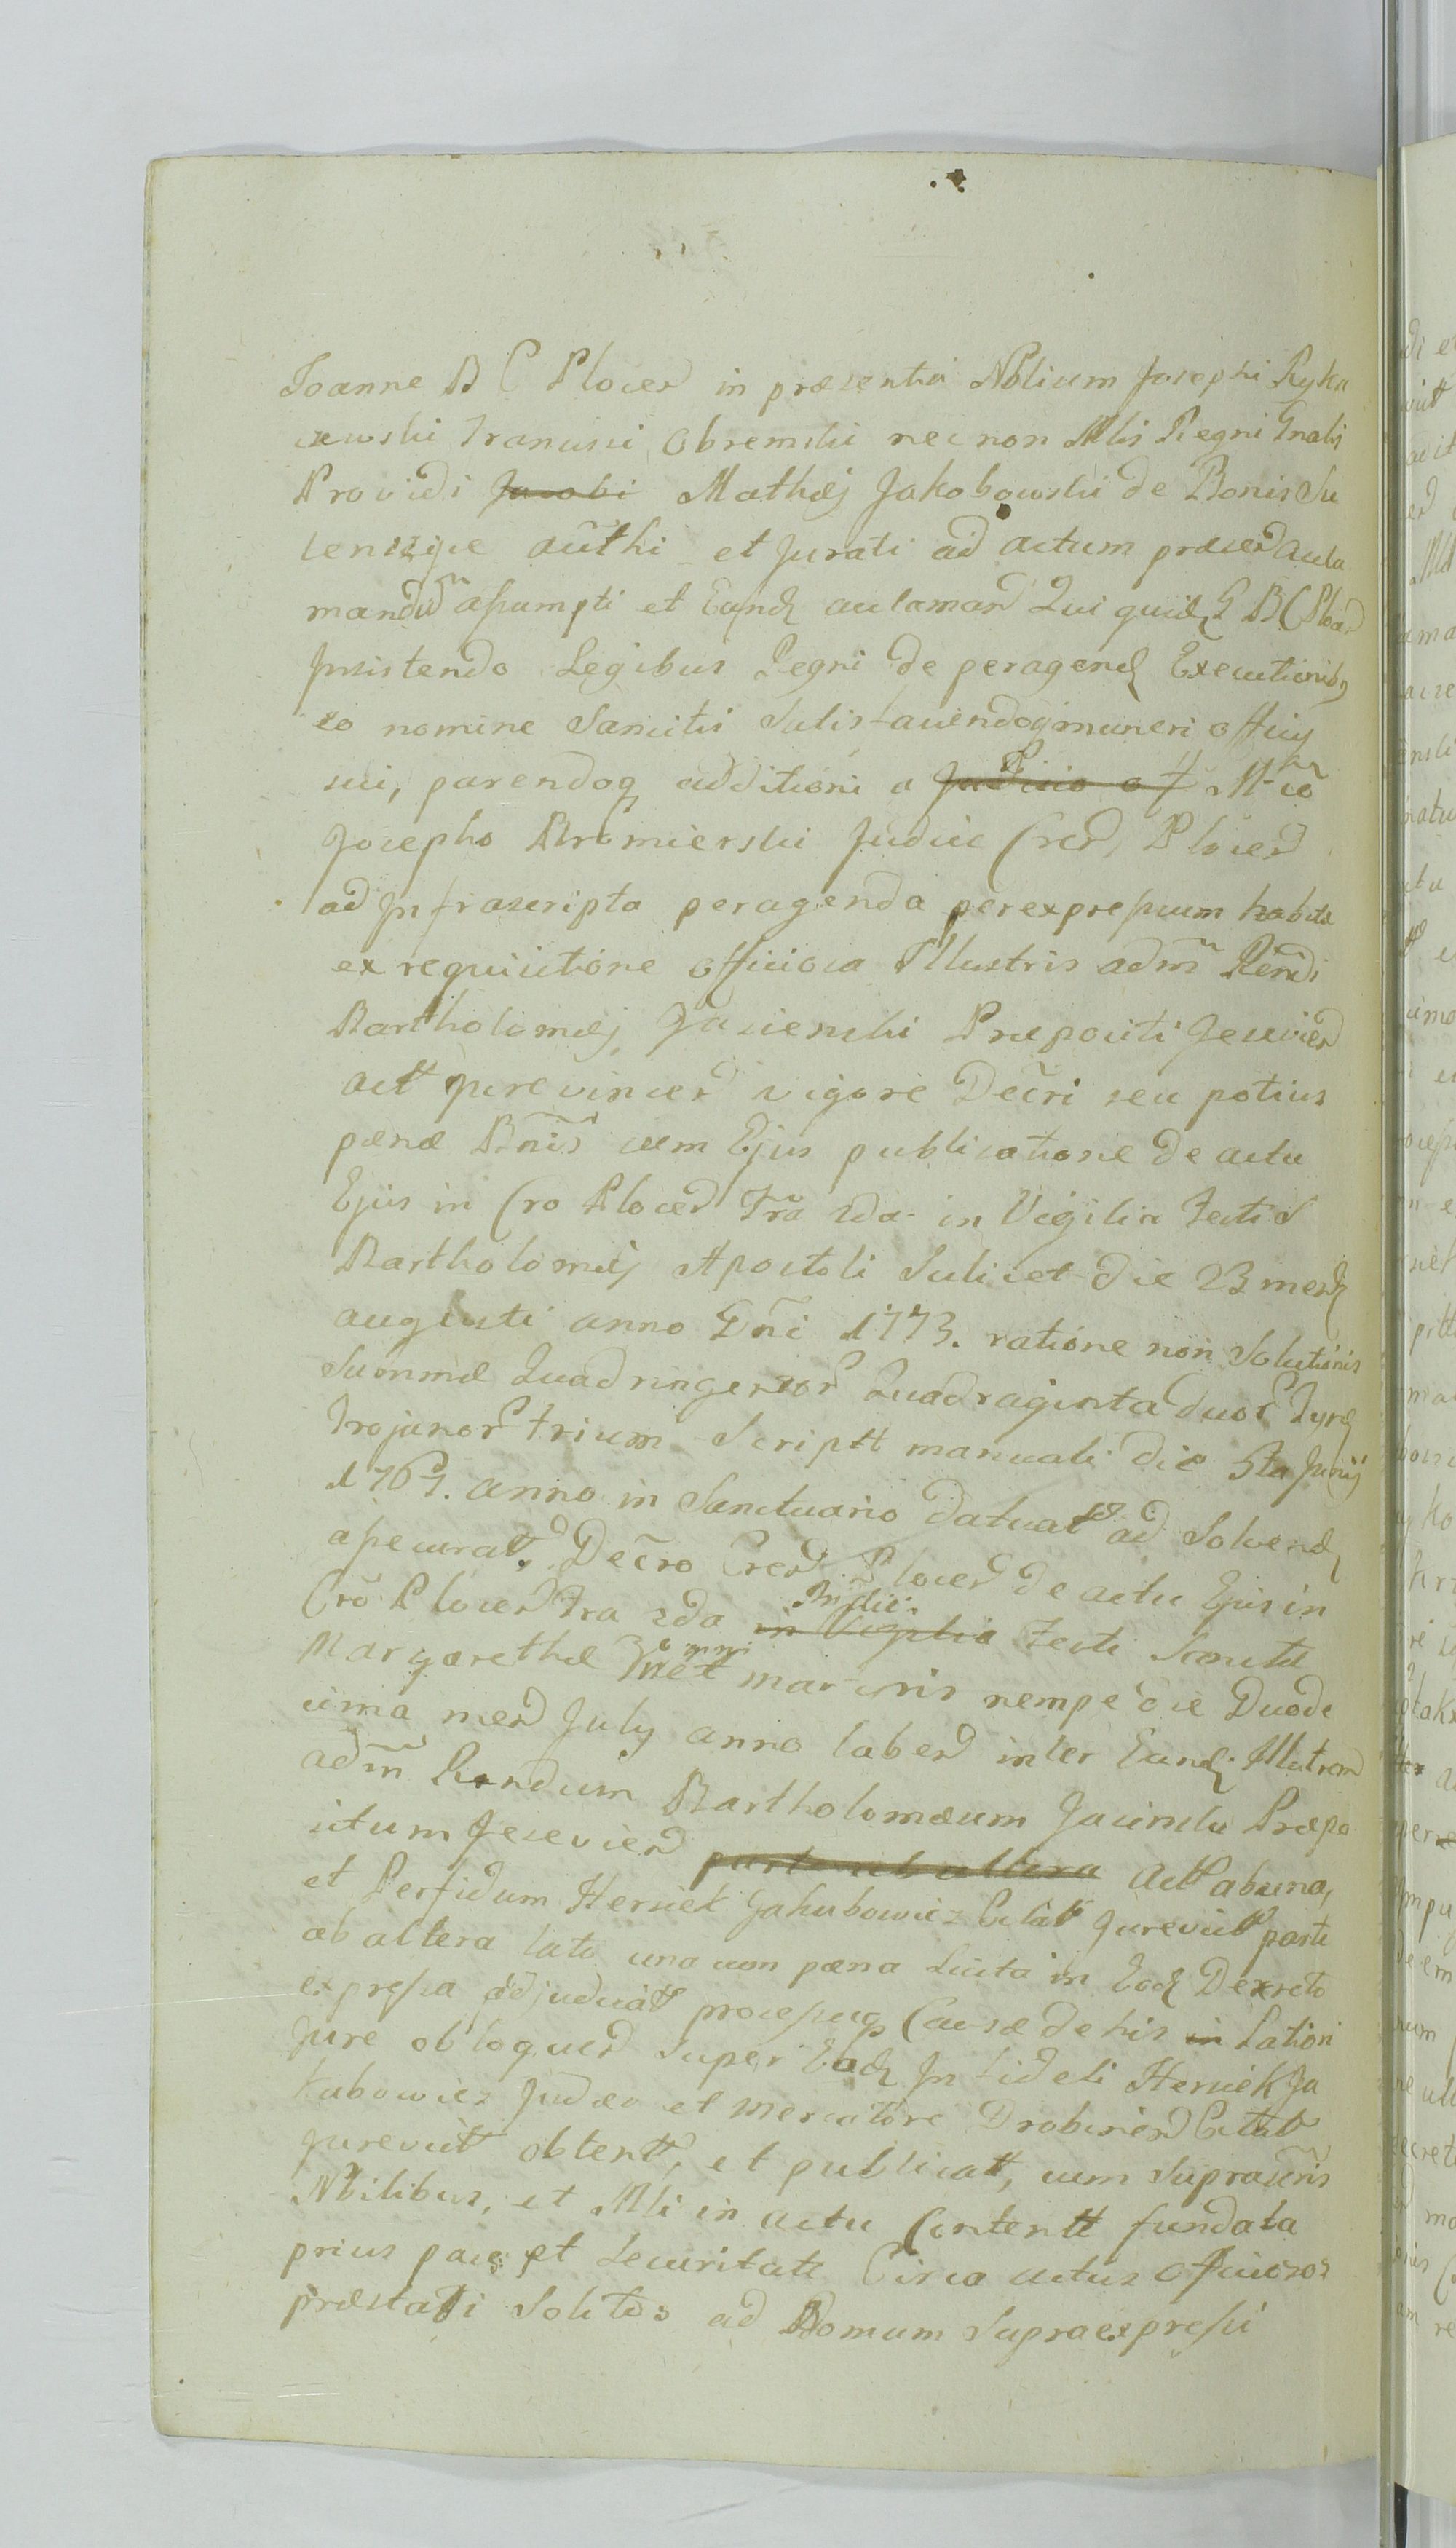 Joanne B C Plocen in præsentia Nblium Josephi Ryka
czewski Francisci Obremski nec non Mlis Regni Gnalis
Providi Jacobi Mathæj Jakobowski de Bonis Su
lencize aûthi et Jurati ad actum præsen acla
mandũ assumpti et Eund aclaman Qui quid G B C Plocen
Insistendo Legibus Regni de peragend Executionibq
eo nomine Sancitis Satisfaciendoq muneri officij
sui, parendoq additioni a Judicio a Mco
Josepho Mromierski Judice Cren Plocen
ad Infrascripta peragenda per expressum habita
ex requisitione officiosa Illustris adm̃ Rendi
Bartholomæj Jasienski Præpositi Jezevien
act jurevincen vigore Decri seu potius
pænæ Bñis cum Ejus publicatione de actu
Ejus in Cro Plocen Fra 2da in Vigilia Festi S
Bartholomæj Apostoli Scilicet die 23 mens
augusti anno Dñi 1773. ratione non Solutionis
Summæ Quadringentor Quadraginta duor Tynf
Trojanor trium Scriptt manuali die 5ta Junij
1767. anno in Sanctuario datuat ad Solvend
assecurat, Decro Cren Plocen de actu Ejus in
Crõ Plocen Fra 2da in Vigilia Pridie Festi Sanctæ
Margarethæ martyris nempe die Duode
cima men July anno laben inter Eund Illustrem
adm̃ Rendum Bartholomæum Jasinski Præpo
situm Jezevien parte ab altera Act ab una,
et Perfidum Hersiek Jakubowicz Citat Jurevict parte
ab altera lato una cum pæna Lucta in Eod Decreto
expressa adjudicatt processuq Causæ de his in Lationi
Jure obloquen super Eod Infideli Hersiek Ja
kubowicz Judæo et Mercatore Drobinien Citat
Jurevict obtentt, et publicatt, cum Suprascris
Nbilibus, et Mli in actu Contentt fundata
prius pace et Securitate Circa actus officiosos
præstari Solitos ad Domum Supraexpressi